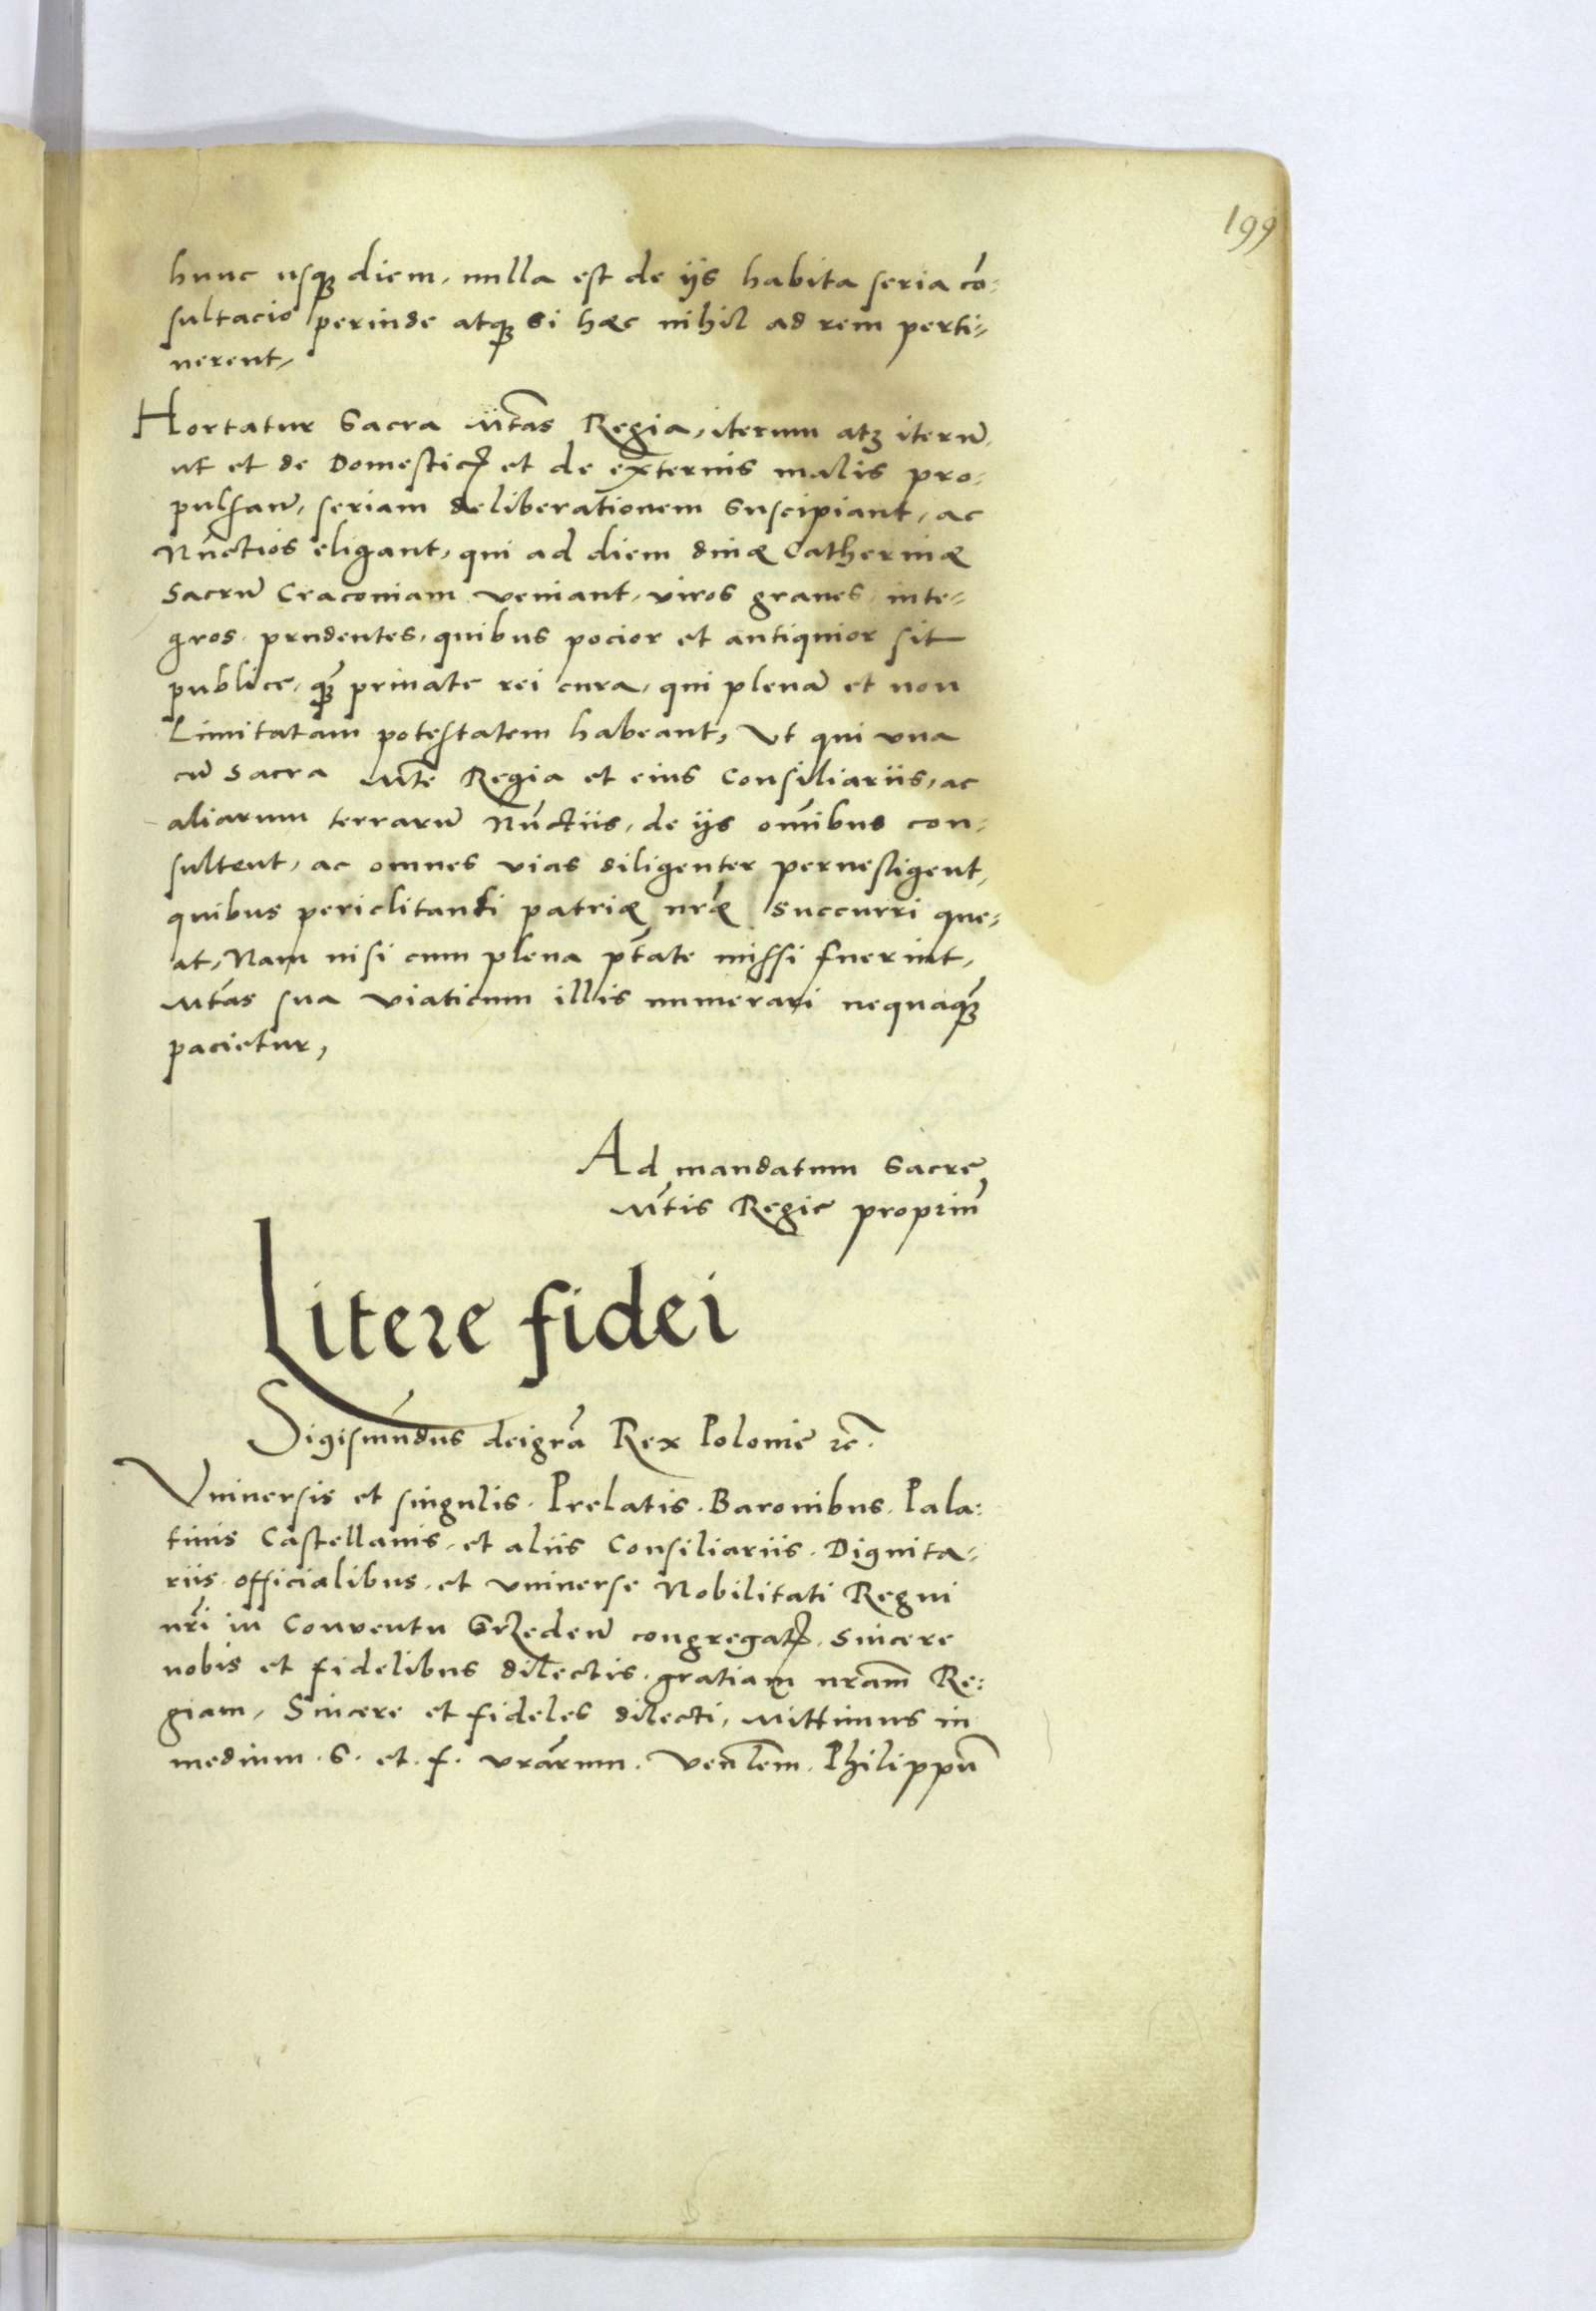 199
hunc usq; diem, nulla est de ijs habita seria cō-
sultacio perinde atq; si hæc nihil ad rem perti-
nerent,
Hortatur Sacra Mtas Regia, iterum atq; iterū,
ut et de Domestic et de externis malis pro-
pulsan̄, seriam deliberationem suscipiant, ac
Nūctios eligant, qui ad diem diuæ Catherinæ
Sacrū Cracouiam veniant, viros graues, inte-
gros, prudentes, quibus pocior et antiquior sit
publice, q̄ȝ priuate rei cura, qui plenā et non
Limitatam potestatem habeant, Vt qui vna
cū Sacra Mte Regia et eius Consiliariis, ac
aliarum terrarū Nūctiis, de ijs om̄ibus con-
sultent, ac omnes vias diligenter peruestigent,
quibus periclitanti patriæ nr̄æ succurri que-
at, Nam nisi cum plena ptāte missi fuerint,
Mtas sua viaticum illis numerari nequaq̄ȝ
pacietur,
Ad mandatum Sacre
Mtis Regie propriū
Litere fidei
Sigismūdus dei gr̄a Rex Polonie ⁊c.
Vniuersis et singulis. Prelatis. Baronibus. Pala-
tinis Castellanis, et aliis Consiliariis. Dignita-
riis. officialibus, et vniuerse Nobilitati Regni
nr̄i in Conuentu Srzeden̄ congregat, Sincere
nobis et fidelibus dilectis, gratiam nram̄ Re-
giam, Sincere et fideles dilecti, Mittimus in
medium. S. et. f. vrārum. Venlem̄. Philippū